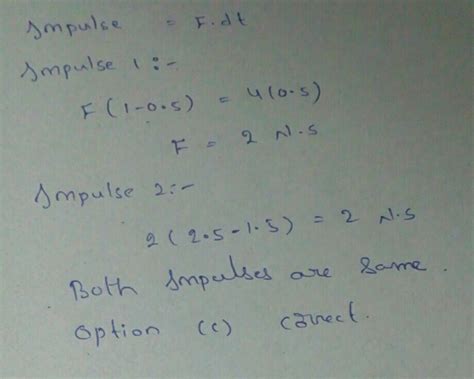 Impulse = F.dt
Impulse 1:-
F(1-0.5) = 4(0.5)
F = 2 N.S
Impulse 2:-
2(2.5-1.5) = 2 N.S
Both Impulses are same.
Option (c) correct.